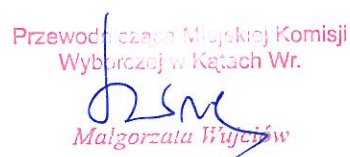 Przewodnicząca Miejskiej Komisji
Wyborczej w Kątach Wr.
Małgorzata Wujciów